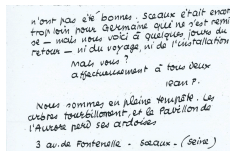 n'ont pas été bonnes. Sceaux était encore
trop loin pour Germaine qui ne s'est remi
se – mais nous voici à quelques jours du
retour – ni du voyage, ni de l'installation
Mais vous ?
affectueusement à tous deux
Jean P.
Nous sommes en pleine tempête. Les
arbres tourbillonnent, et le Pavillon de
l'Aurore perd ses ardoises
3 av. de Fontenelle - Sceaux - (Seine)